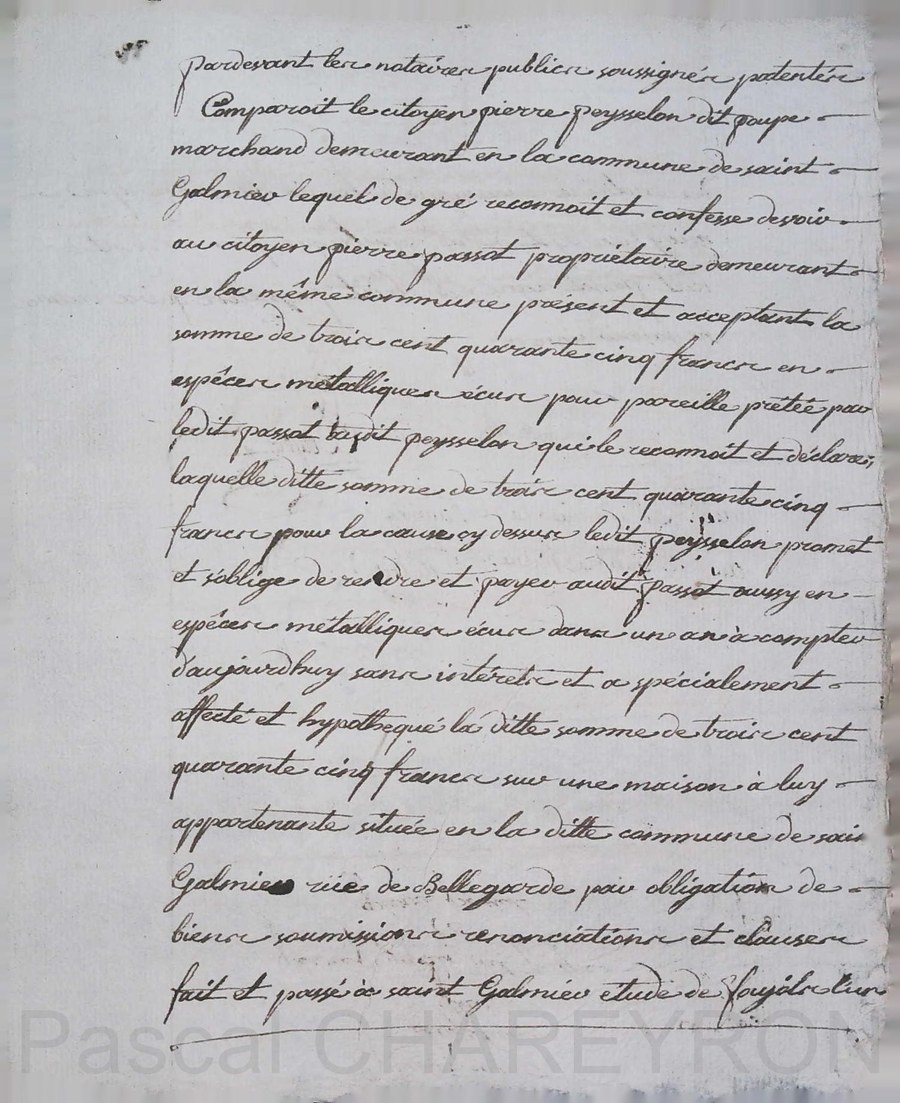 pardevant les notaires publics soussignés patentés
Comparoit le citoyen pierre peysselon dit poupe
marchand demeurant en la commune de saint
Galmier lequel de gré reconnoit et confesse devoir
au citoyen pierre passot propriétaire demeurant
en la même commune présent et acceptant la
somme de trois cent quarante cinq francs en
espêces métalliques écus pour pareille prêtée par
ledit passot audit peysselon qui le reconnoit et déclare,
laquelle ditte somme de trois cent quarante cinq
francs pour la cause cy dessus ledit peysselon promet
et s'oblige de rendre et payer audit passot aussy en
espêces métalliques écus dans un an à compter
d'aujourdhuy sans intérets et a spécialement
affecté et hypothequé la ditte somme de trois cent
quarante cinq francs sur une maison à luy
appartenante située en la ditte commune de sain
Galmier rüe de Bellegarde par obligation de
biens soumissions renonciations et clauses
fait et passé à saint Galmier etude de l'un
Pascal CHAREYRON